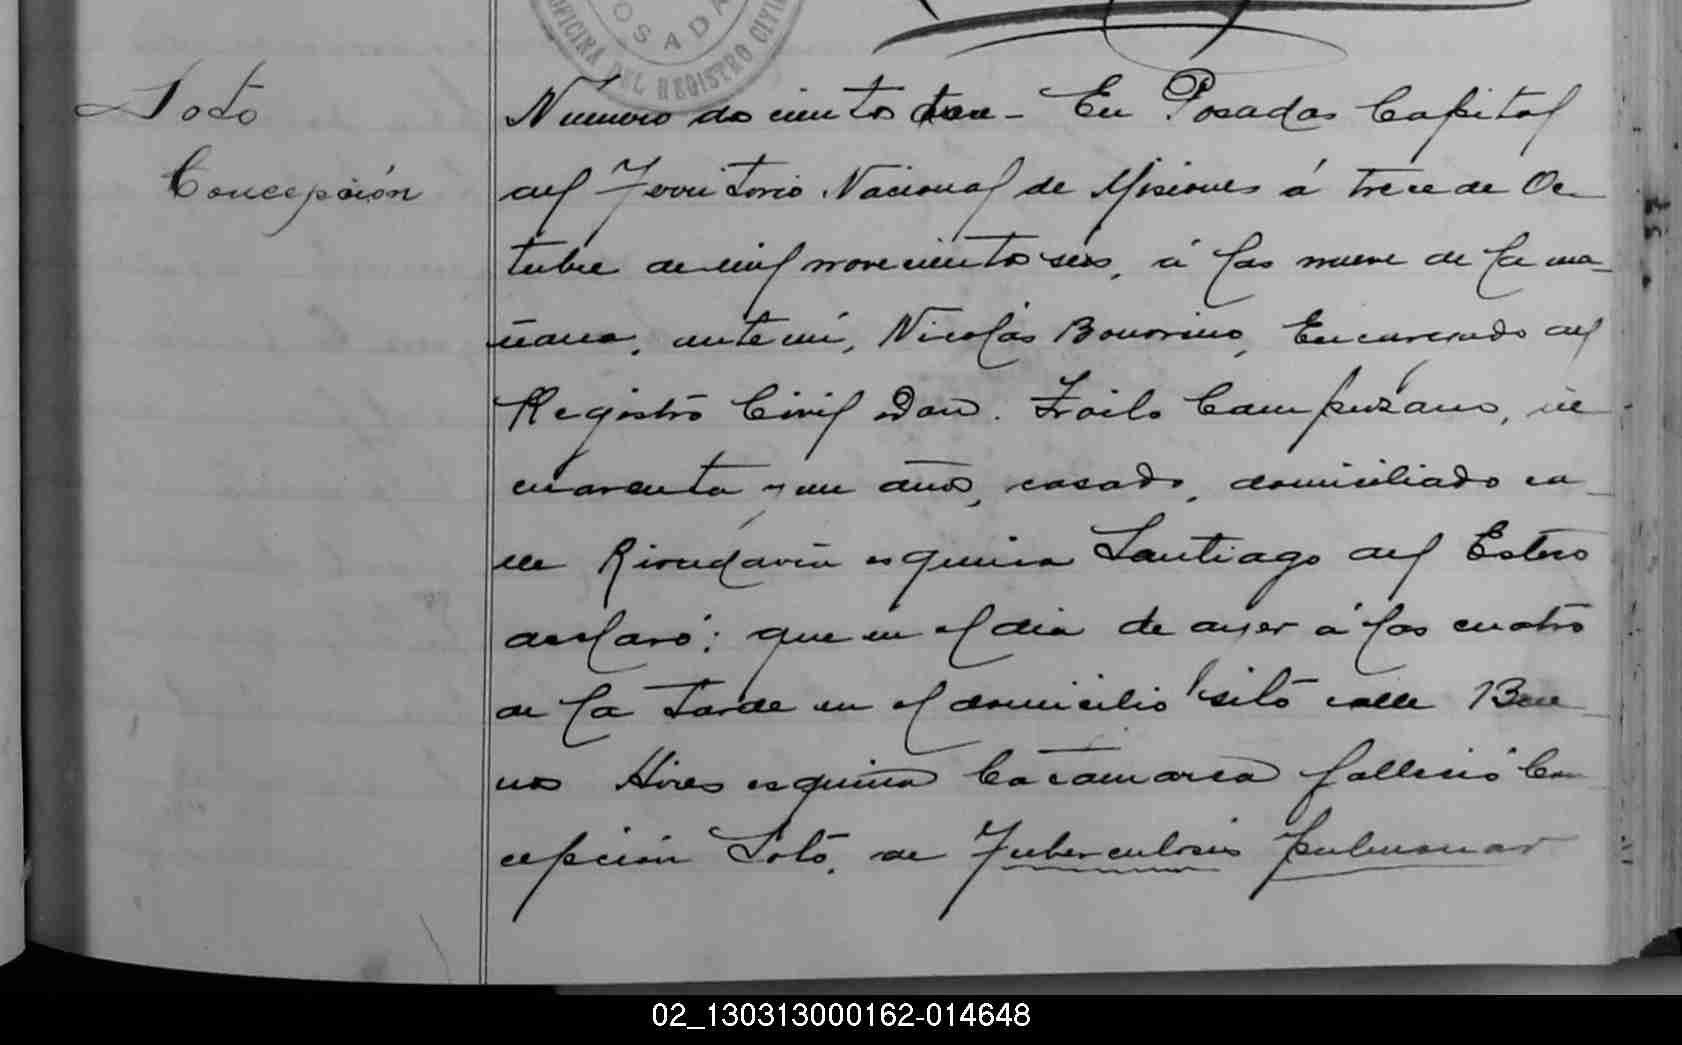 POSADA
OFICINA DEL REGISTRO CIVIL
Soto
Concepción
Número doscientos - En Posadas Capital
del Territorio Nacional de Misiones á trece de Oc-
tubre de mil novecientos seis, á las nueve de la ma-
ñana, ante mí, Nicolás Bonorino, Encargado del
Registro Civil Don. Froilo Campuzano, de
cuarenta y un años, casado, domiciliado ca-
lle Rivadavia esquina Santiago del Estero
declaró: que en el dia de ayer á las cuatro
de la tarde en el domicilio sito calle Bue-
nos Aires esquina Catamarca falleció Con-
cepción Soto, de Tuberculosis pulmonar
02_130313000162-014648